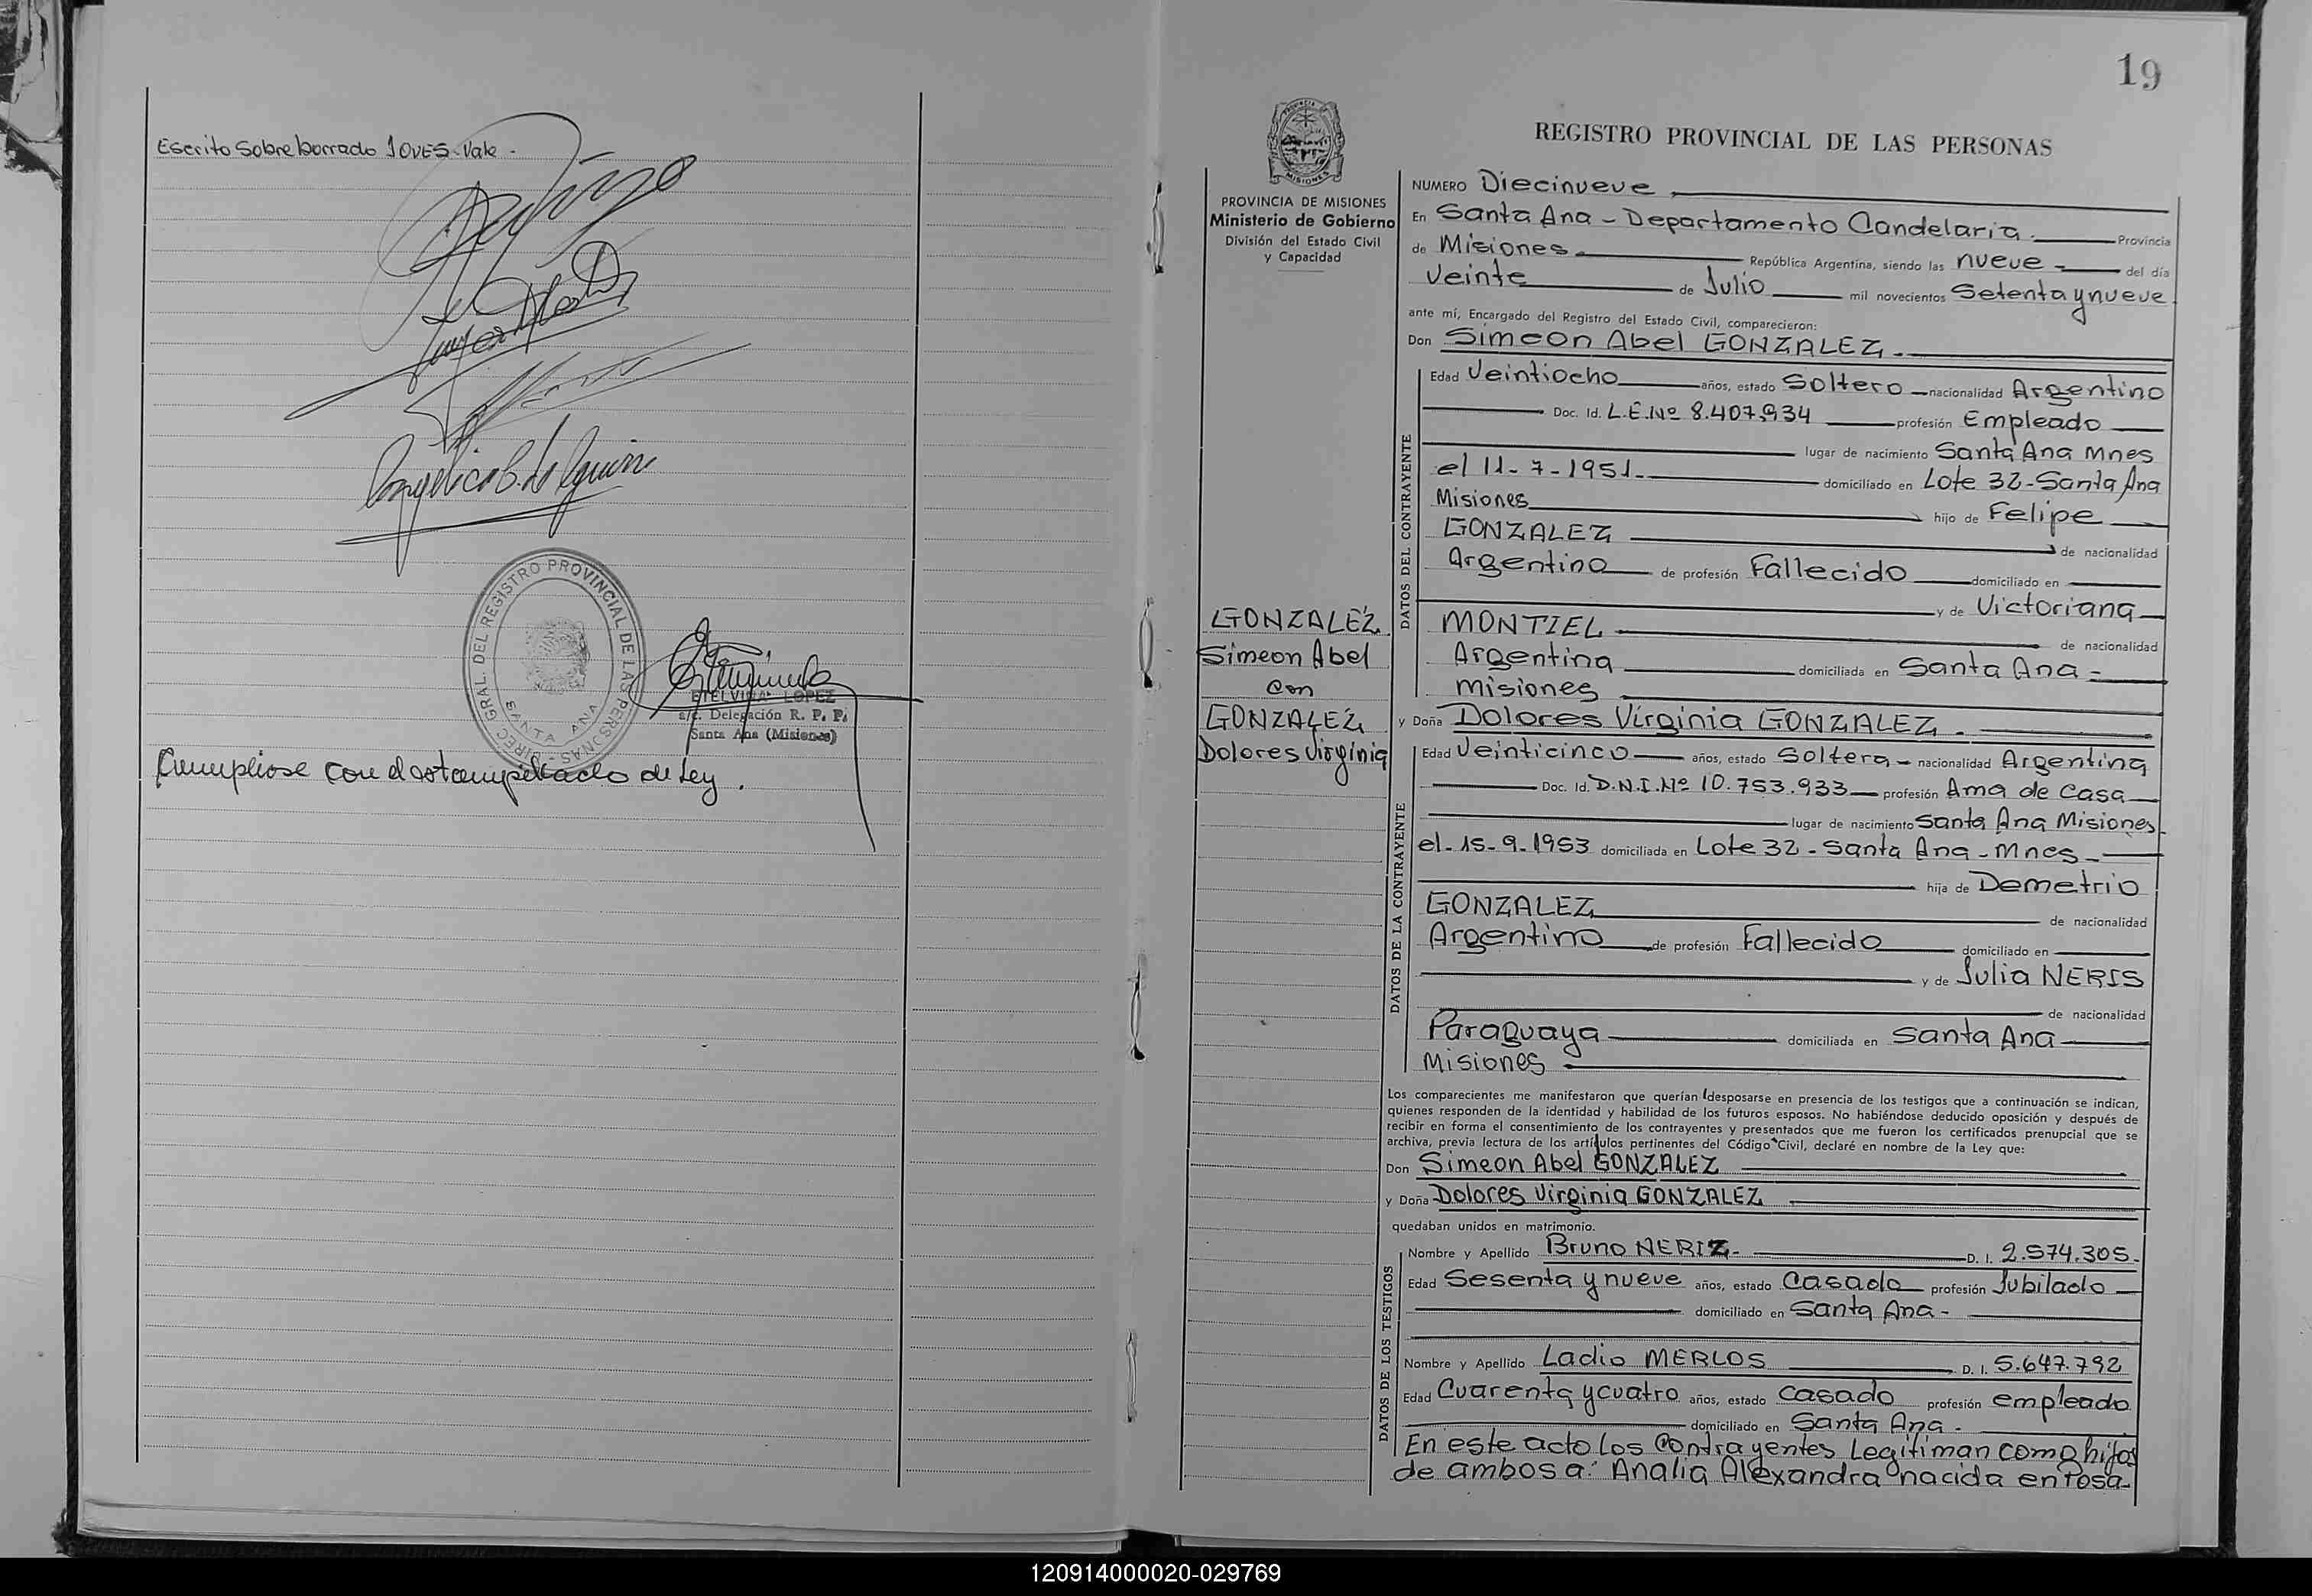 Escrito Sobre borrado JOVES-Vale -
DIREC. GRAL. DEL REGISTRO PROVINCIAL DE LAS PERSONAS
SANTA ANA
ETELVINA LOPEZ
a/c. Delegación R. P. P.
Santa Ana (Misiones)
Cumpliose con el estampillado de Ley .
19
PROVINCIA DE MISIONES
Ministerio de Gobierno
División del Estado Civil
y Capacidad
GONZALEZ
Simeon Abel
con
GONZALEZ
Dolores Virginia
REGISTRO PROVINCIAL DE LAS PERSONAS
NUMERO Diecinueve
En Santa Ana - Departamento Candelaria. Provincia
de Misiones República Argentina, siendo las nueve - del día
Veinte de Julio mil novecientos Setenta y nueve
ante mí, Encargado del Registro del Estado Civil, comparecieron:
Don Simeon Abel GONZALEZ.
DATOS DEL CONTRAYENTE
Edad Veintiocho años, estado Soltero nacionalidad Argentino
Doc. Id. L.E.Nº 8.407.934 profesión Empleado
lugar de nacimiento Santa Ana Mnes
el 11-7-1951. domiciliado en Lote 32-Santa Ana
Misiones hijo de Felipe
GONZALEZ de nacionalidad
Argentino de profesión Fallecido domiciliado en
y de Victoriana
MONTIEL de nacionalidad
Argentina domiciliada en Santa Ana -
misiones
y Doña Dolores Virginia GONZALEZ.
DATOS DE LA CONTRAYENTE
Edad Veinticinco años, estado Soltera - nacionalidad Argentina
Doc. Id. D.N.I.Nº 10.753.933 profesión Ama de Casa
lugar de nacimiento Santa Ana Misiones
el-15-9-1953 domiciliada en Lote 32 - Santa Ana - Mnes -
hija de Demetrio
GONZALEZ de nacionalidad
Argentino de profesión Fallecido domiciliado en
y de Julia NERIS
de nacionalidad
Paraguaya domiciliada en Santa Ana
Misiones
Los comparecientes me manifestaron que querían desposarse en presencia de los testigos que a continuación se indican,
quienes responden de la identidad y habilidad de los futuros esposos. No habiéndose deducido oposición y después de
recibir en forma el consentimiento de los contrayentes y presentados que me fueron los certificados prenupcial que se
archiva, previa lectura de los artículos pertinentes del Código Civil, declaré en nombre de la Ley que:
Don Simeon Abel GONZALEZ
y Doña Dolores Virginia GONZALEZ
quedaban unidos en matrimonio.
DATOS DE LOS TESTIGOS
Nombre y Apellido Bruno NERIZ- D. I. 2.574.305.
Edad Sesenta y nueve años, estado Casado profesión Jubilado
domiciliado en Santa Ana -
Nombre y Apellido Ladio MERLOS D. I. 5.647.792
Edad Cuarenta y cuatro años, estado casado profesión empleado
domiciliado en Santa Ana -
En este acto los Contrayentes Legitiman como hijos
de ambos a: Analia Alexandra nacida en Posa-
120914000020-029769